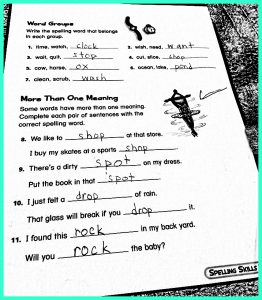 Word Groups
Write the spelling word that belongs
in each group.
1. time, watch, clock
2. wish, need, want
3. wait, quit, stop
4. cut, slice, chop
5. cow, horse, ox
6. ocean, lake, pond
7. clean, scrub, wash
More Than One Meaning
Some words have more than one meaning.
Complete each pair of sentences with the
correct spelling word.
8. We like to shop at that store.
I buy my skates at a sports shop
9. There's a dirty spot on my dress.
Put the book in that spot
10. I just felt a drop of rain.
That glass will break if you drop it.
11. I found this rock in my back yard.
Will you rock the baby?
SPELLING SKILLS